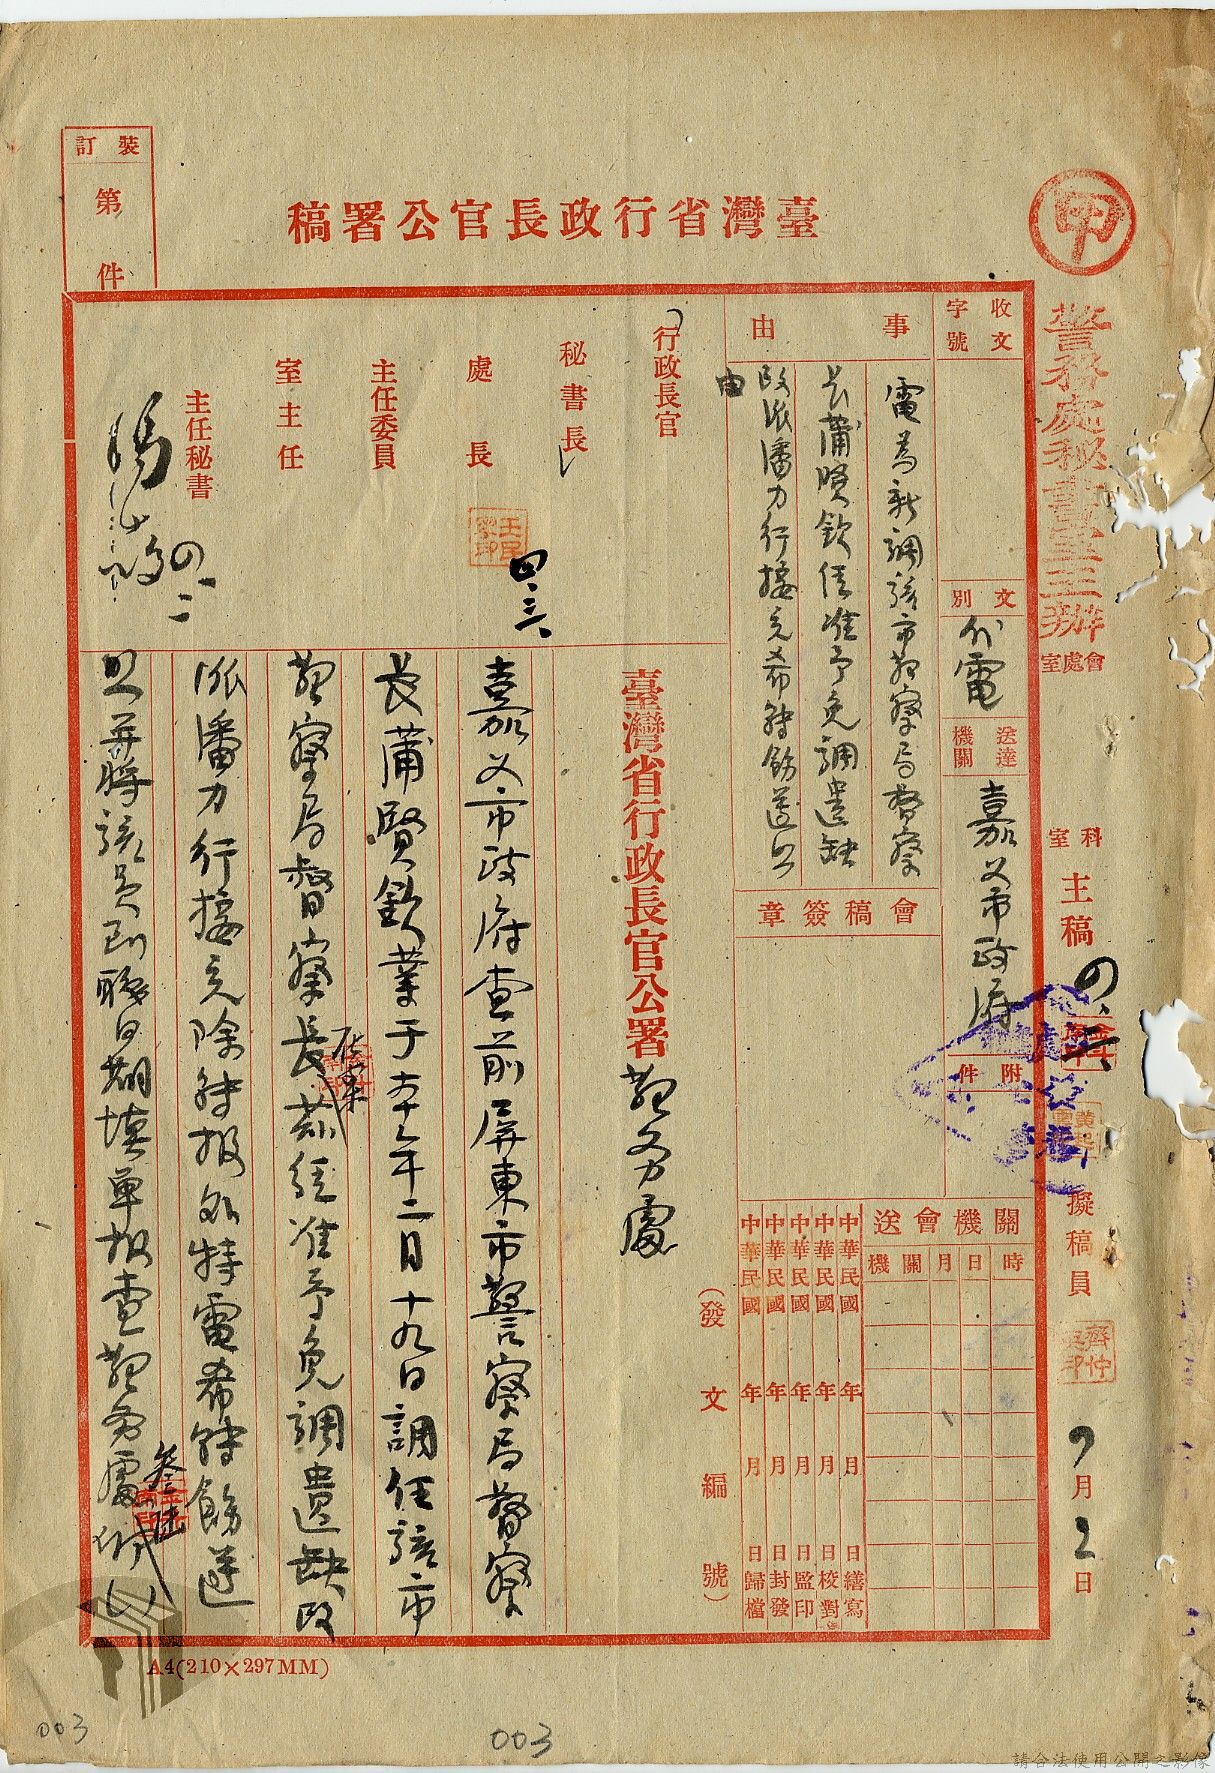 裝訂
第
件
臺灣省行政長官公署稿
甲
警務處秘書室主辦
會處室
科室
主稿
擬稿員
月2日
收文字號
文別
代電
送達機關
嘉义市政府
附件
事由
電為新調該市警察局督察
長蒲賢欽經准予免調遺缺
改派潘力行接充希转飭遵照
由
會稿簽章
關機會送
機關
月
日
時
中華民國 年 月 日繕寫
中華民國 年 月 日校對
中華民國 年 月 日監印
中華民國 年 月 日封發
中華民國 年 月 日歸檔
(發文編號)
行政長官
秘書長
處長
四、三、
主任委員
室主任
主任秘書
臺灣省行政長官公署警务處
嘉义市政府查前屏東市警察局督察
長蒲賢欽業于 年二月十九日調任該市
警察局督察長 經准予免調遺缺改
派潘力行接充除转报外特電希转飭遵
照并将該員到職日期填單报查警务處
叁陆
A4(210×297MM)
003
003
請合法使用公開之影像